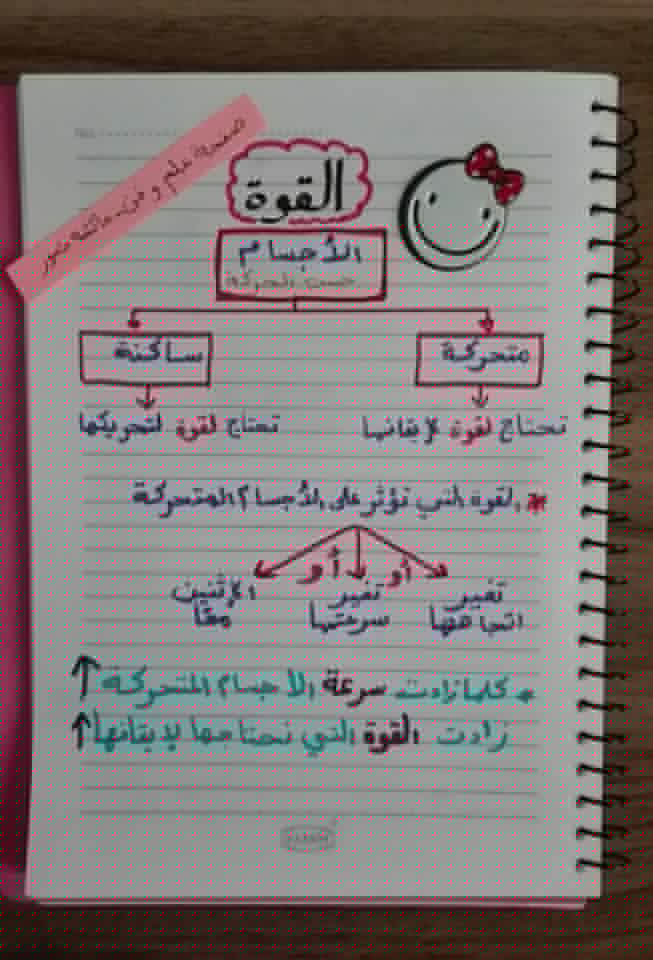 صفحة علم و
القوة
الأجسام
حسب الحركة
متحركة
ساكنة
تحتاج لقوة لإيقافها
تحتاج لقوة لتحريكها
* القوة التي تؤثر على الأجسام المتحركة
أو
أو
تغير
اتجاهها
تغير
سرعتها
الإثنين
معًا
* كلما زادت سرعة الأجسام المتحركة ↑
زادت القوة التي نحتاجها لإيقافها ↑